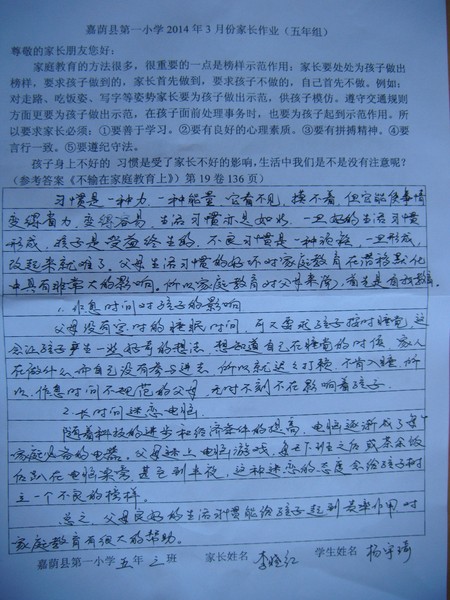 嘉荫县第一小学2014年3月份家长作业（五年组）
尊敬的家长朋友您好：
家庭教育的方法很多，很重要的一点是榜样示范作用；家长要处处为孩子做出
榜样，要求孩子做到的，家长首先做到，要求孩子不做的，自己首先不做。例如：
对走路、吃饭姿、写字等姿势家长要为孩子做出示范，供孩子模仿。遵守交通规则
方面更要为孩子做出示范，在孩子面前处理事务时，也要为孩子起到示范作用。所
以要求家长必须：①要善于学习。②要有良好的心理素质。③要有拼搏精神。④要
言行一致。⑤要遵纪守法。
孩子身上不好的 习惯是受了家长不好的影响，生活中我们是不是没有注意呢？
（参考答案《不输在家庭教育上》）第19卷136页）
习惯是一种力，一种能量，它看不见，摸不着，但它能使事情
变得省力，变得容易，生活习惯亦是如此，一旦好的生活习惯
形成，孩子是受益终生的，不良习惯是一种顽疾，一旦形成，
改起来就难了。父母生活习惯的好坏对家庭教育在潜移默化
中具有非常大的影响。所以家庭教育对父母来讲，首先是自我教育。
1. 作息时间对孩子的影响
父母没有定时的睡眠时间，而又要求孩子按时睡觉，这
会让孩子产生一些好奇的想法，想知道自己在睡觉的时候，家人
在做什么而自己没有参与进去，所以就迟迟打赖，不肯入睡，所
以，作息时间不规范的父母，无时不刻不在影响着孩子。
2. 长时间迷恋电脑
随着科技的进步和经济条件的提高，电脑逐渐成了每个
家庭必备的电器。父母迷上电脑游戏，每天下班之后或茶余饭
后趴在电脑桌旁，甚至到半夜，这种迷恋的态度会给孩子树
立一个不良的榜样。
总之，父母良好的生活习惯能给孩子起到表率作用对
家庭教育有很大的帮助。
嘉荫县第一小学 五年 三 班 家长姓名 李 红 学生姓名 杨宇琦